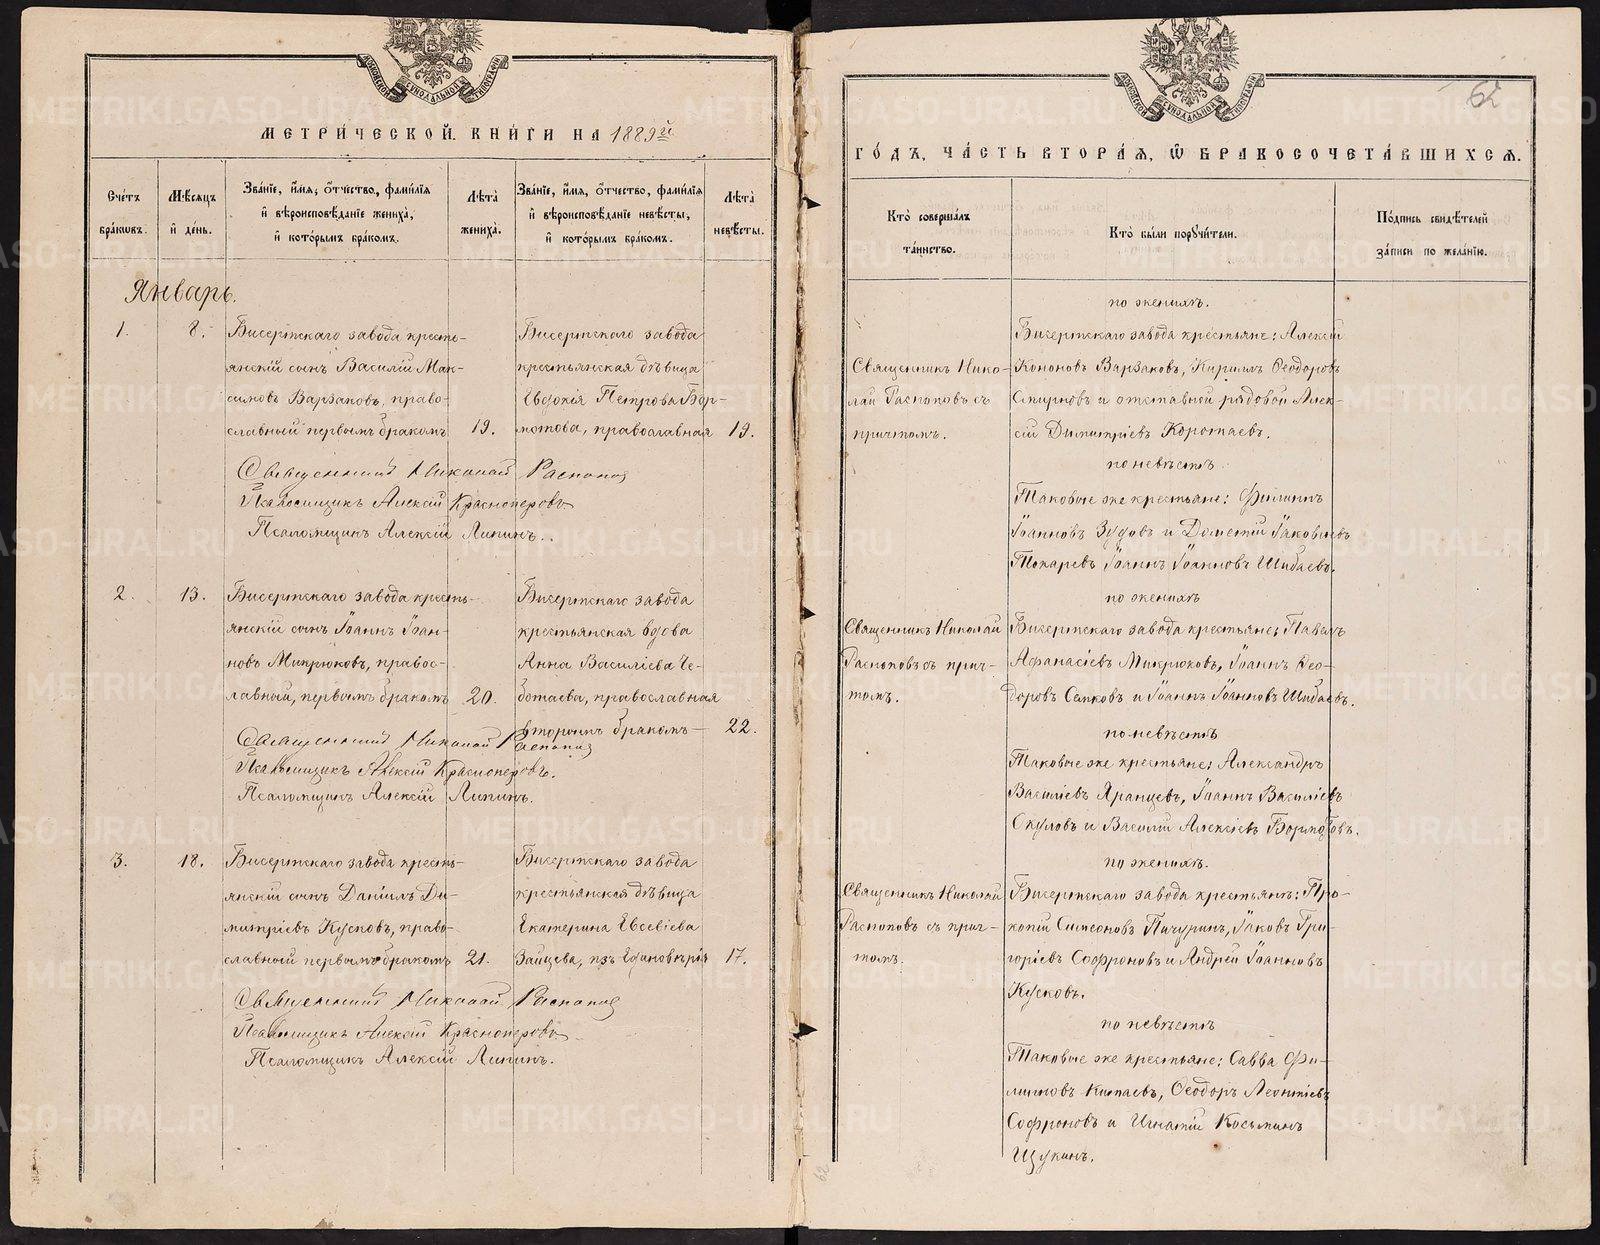 МЕТРИ́ЧЕСКОЙ КНИ́ГИ НА 1889й
Сче́тъ бра́кѡвъ.
Мѣ́сяцъ и҆ де́нь.
Зва́нїе, и҆́мя, ѻ҆́тчество, фами́лїя
и҆ вѣроисповѣ́данїе жениха̀,
и҆ кото́рымъ бра́комъ.
Лѣ́та жениха̀.
Зва́нїе, и҆́мя, ѻ҆́тчество, фами́лїя
и҆ вѣроисповѣ́данїе невѣ́сты,
и҆ кото́рымъ бра́комъ.
Лѣ́та невѣ́сты.
Январь.
1. 8.
Бисертскаго завода кресть-
янскій сынъ Василій Мак-
симовъ Варзаковъ, право-
славный первымъ бракомъ 19.
Бисертскаго завода
крестьянская дѣвица
Евдокія Петрова Бор-
мотова, православная 19.
Священникъ Николай Распопов
Псаломщикъ Алексій Краснопёровъ
Псаломщикъ Алексій Липинъ.
2. 13.
Бисертскаго завода кресть-
янскій сынъ Іоаннъ Іоан-
новъ Микрюковъ, правос-
лавный, первымъ бракомъ 20.
Бисертскаго завода
крестьянская вдова
Анна Василіева Че-
ботаева, православная
вторымъ бракомъ— 22.
Священникъ Николай Распопов
Псаломщикъ Алексій Краснопёровъ.
Псаломщикъ Алексій Липинъ.
3. 18.
Бисертскаго завода кресть-
янскій сынъ Даніилъ Ди-
митріевъ Кусковъ, право-
славный первымъ бракомъ 21.
Бисертскаго завода
крестьянская дѣвица
Екатерина Евсевіева
Зайцева, изъ Единовѣрія 17.
Священникъ Николай Распопов
Псаломщикъ Алексій Краснопёровъ
Псаломщикъ Алексій Липинъ.
62
ГО́ДЪ, ЧА́СТЬ ВТОРА́Я, Ѽ БРАКОСОЧЕТА́ВШИХСЯ.
Кто̀ соверша́лъ
та́инство.
Кто̀ бы́ли порꙋчи́тели.
По́дпись свидѣ́телей
за́писи по жела́нїю.
по женихѣ.
Бисертскаго завода крестьяне: Алексій
Кононовъ Варзаковъ, Кириллъ Ѳеодоровъ
Смирновъ и отставной рядовой Алек-
сій Димитріевъ Коротаевъ.
Священникъ Нико-
лай Распоповъ съ
причтомъ.
по невѣстѣ
Таковые же крестьяне: Филиппъ
Іоанновъ Зудовъ и Дометій Іаковлевъ
Токаревъ Іоаннъ Іоанновъ Шибаевъ.
по женихѣ
Священникъ Николай
Распоповъ съ прич-
томъ.
Бисертскаго завода крестьяне: Павелъ
Афанасіевъ Микрюковъ, Іоаннъ Ѳео-
доровъ Сапковъ и Іоаннъ Іоанновъ Шибаевъ.
по невѣстѣ
Таковые же крестьяне: Александръ
Василіевъ Яранцевъ, Іоаннъ Василіевъ
Окуловъ и Василій Алексіевъ Бормотовъ.
по женихѣ.
Священникъ Николай
Распоповъ съ прич-
томъ.
Бисертскаго завода крестьяне: Про-
копій Симеоновъ Пичугинъ, Іаковъ Гри-
горіевъ Софроновъ и Андрей Іоанновъ
Кусковъ.
по невѣстѣ
Таковые же крестьяне: Савва Фи-
липповъ Кипаевъ, Ѳеодоръ Леонтіевъ
Софроновъ и Игнатій Косьминъ
Щукинъ.